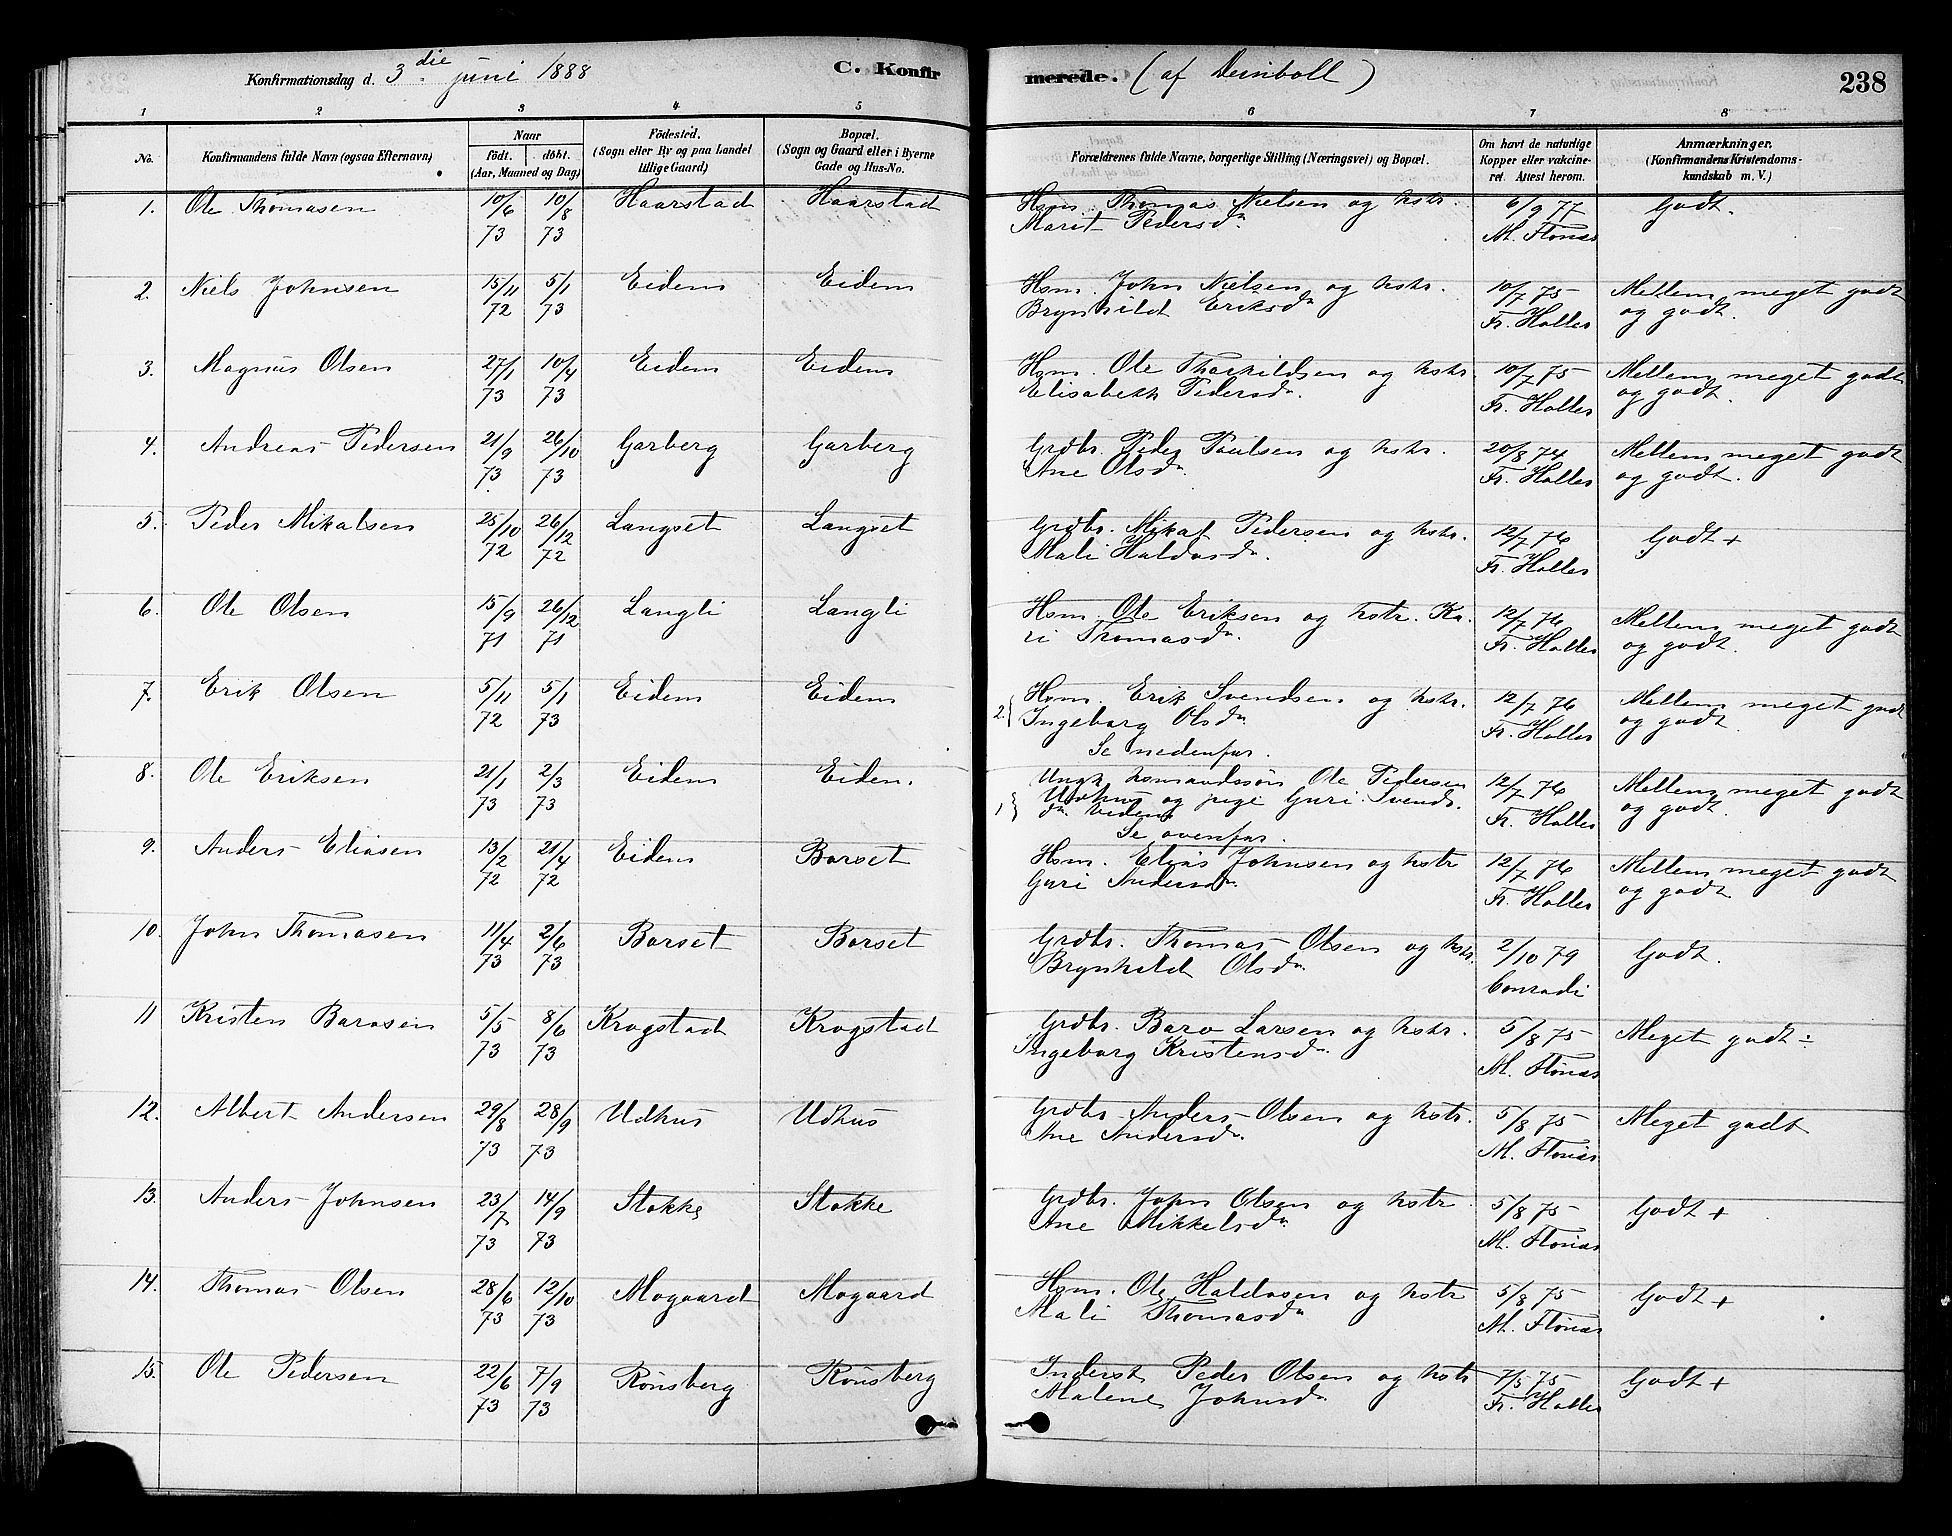 Konfirmationsdag d. 3die juni 1888 C. Konfirmerede. (af Deinboll) 238
1 2 3 4 5 6 7 8
No. Konfirmandens fulde Navn (ogsaa Efternavn) Naar födt. döbt. (Aar, Maaned og Dag) Födested. (Sogn eller By og paa Landet tillige Gaard) Bopæl. (Sogn og Gaard eller i Byerne Gade og Hus-No. Forældrenes fulde Navne, borgerlige Stilling (Næringsvei) og Bopæl. Om havt de naturlige Kopper eller vakcineret. Attest herom. Anmærkninger. (Konfirmandens Kristendomskundskab m. V.)
1. Ole Thomasen 10/6 73 10/8 73 Haarstad Haarstad Hsm. Thomas Nielsen og hstr. Marit Pedersdr. 6/9 77 M. Flønæs Godt.
2. Niels Johnsen 15/11 72 5/1 73 Eidem Eidem Hsm. John Nielsen og hstr. Brynhild Eriksdr 10/7 75 Fr. Holler Mellem meget godt og godt.
3. Magnus Olsen 27/1 73 10/4 73 Eidem Eidem Hsm. Ole Thorkildsen og hstr. Elisabeth Pedersdr. 10/7 75 Fr. Holler Mellem meget godt og godt.
4. Andreas Pedersen 21/9 73 26/10 73 Garberg Garberg Grdbr. Peder Paulsen og hstr. Ane Olsdr. 20/8 74 Fr. Holler Mellem meget godt og godt.
5. Peder Mikalsen 25/10 72 26/12 72 Langset Langset Grdbr. Mikal Pedersen og hstr. Mali Haldosdr. 12/7 76 Fr. Holler Godt +
6. Ole Olsen 15/9 71 26/12 71 Langli Langli Hsm. Ole Eriksen og hstr. Kari Thomasdr. 12/7 76 Fr. Holler Mellem meget godt og godt.
7. Erik Olsen 5/11 72 5/1 73 Eidem Eidem 2. Hsm. Erik Svendsen og hstr. Ingeborg Olsdr Se nedenfor. 12/7 76 Fr. Holler Mellem meget godt og godt
8. Ole Eriksen 21/1 73 2/3 73 Eidem Eidem. 1) Ungk. husmandssön Ole Pedersen Udhus og pige Guri Svendsdr. Eidem Se ovenfor. 12/7 76 Fr. Holler Mellem meget godt og godt.
9. Anders Eliasen 13/2 72 21/4 72 Eidem Borset Hsm. Elias Johnsen og hstr Guri Andersdr. 12/7 76 Fr. Holler Mellem meget godt og godt
10. John Thomasen 11/4 73 2/6 73 Borset Borset Grdbr. Thomas Olsen og hstr. Brynhild Olsdr. 2/10 79 Conradi Godt.
11 Kristen Barosen 5/5 73 8/6 73 Krogstad Krogstad Grdbr. Baro Larsen og hstr. Ingeborg Kristensdr. 5/8 75 M. Flønæs Meget godt ÷
12. Albert Andersen 29/8 73 28/9 73 Udhus Udhus Grdbr. Anders Olsen og hstr. Ane Andersdr. 5/8 75 M. Flønæs Meget godt
13. Anders Johnsen 23/7 73 14/9 73 Stokke Stokke Grdbr. John Olsen og hstr. Ane Mikkelsdr. 5/8 75 M. Flønæs Godt +
14. Thomas Olsen 28/6 73 12/10 73 Mogaard Mogaard Hsm. Ole Haldosen og hstr Mali Thomasdr 5/8 75 M. Flønæs Godt +
15. Ole Pedersen 22/6 73 7/9 73 Rönsberg Rönsberg Inderst Peder Olsen og hstr Malene Johnsdr 7/5 75 Fr. Holler Godt +